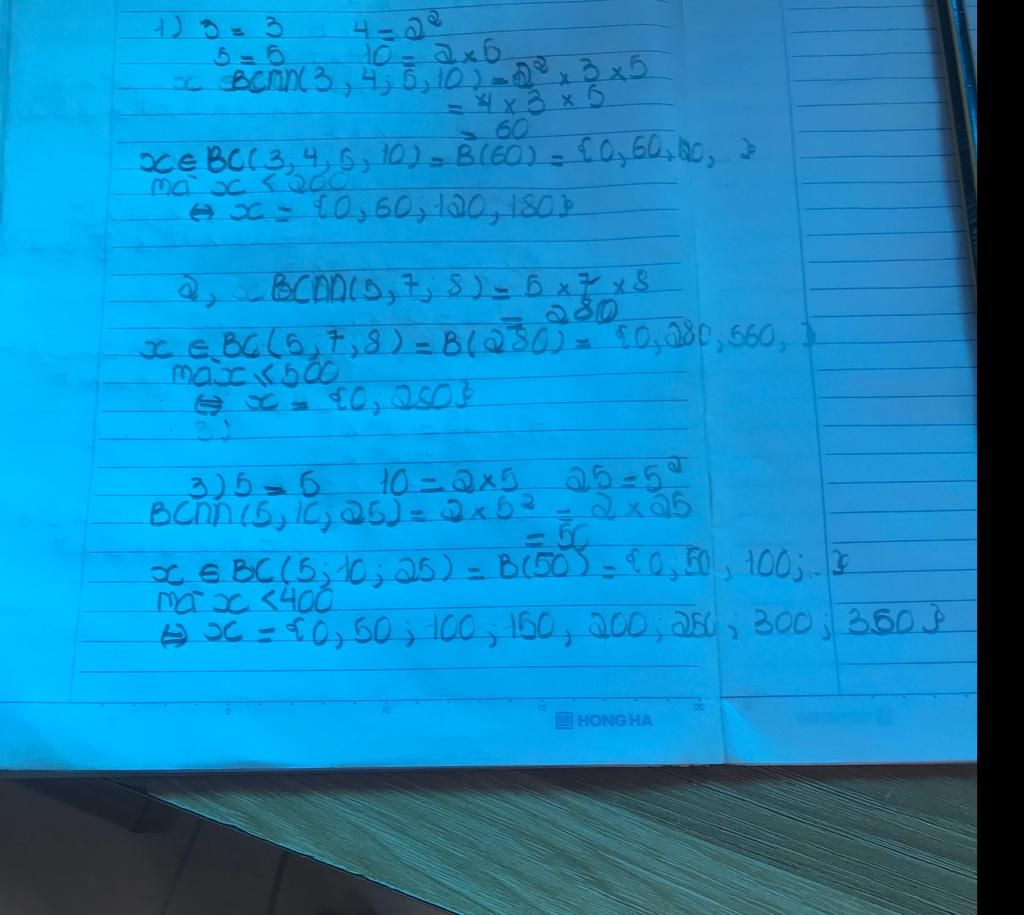 1) 3 = 3 4 = 2²
5 = 5 10 = 2 x 5
x BCNN(3, 4, 5, 10) = 2² x 3 x 5
= 4 x 3 x 5
= 60
x ∈ BC(3, 4, 5, 10) = B(60) = {0, 60, 120, }
mà x < 200
⇔ x = {0, 60, 120, 180}
2, BCNN(5, 7, 8) = 5 x 7 x 8
= 280
x ∈ BC(5, 7, 8) = B(280) = {0, 280, 560, }
mà x < 500
⇔ x = {0, 280}
3)
3) 5 = 5 10 = 2 x 5 25 = 5²
BCNN(5, 10, 25) = 2 x 5² = 2 x 25
= 50
x ∈ BC(5; 10; 25) = B(50) = {0, 50, 100; .. }
mà x < 400
⇔ x = {0, 50; 100; 150, 200; 250; 300; 350}
5 10 15 20
HONG HA